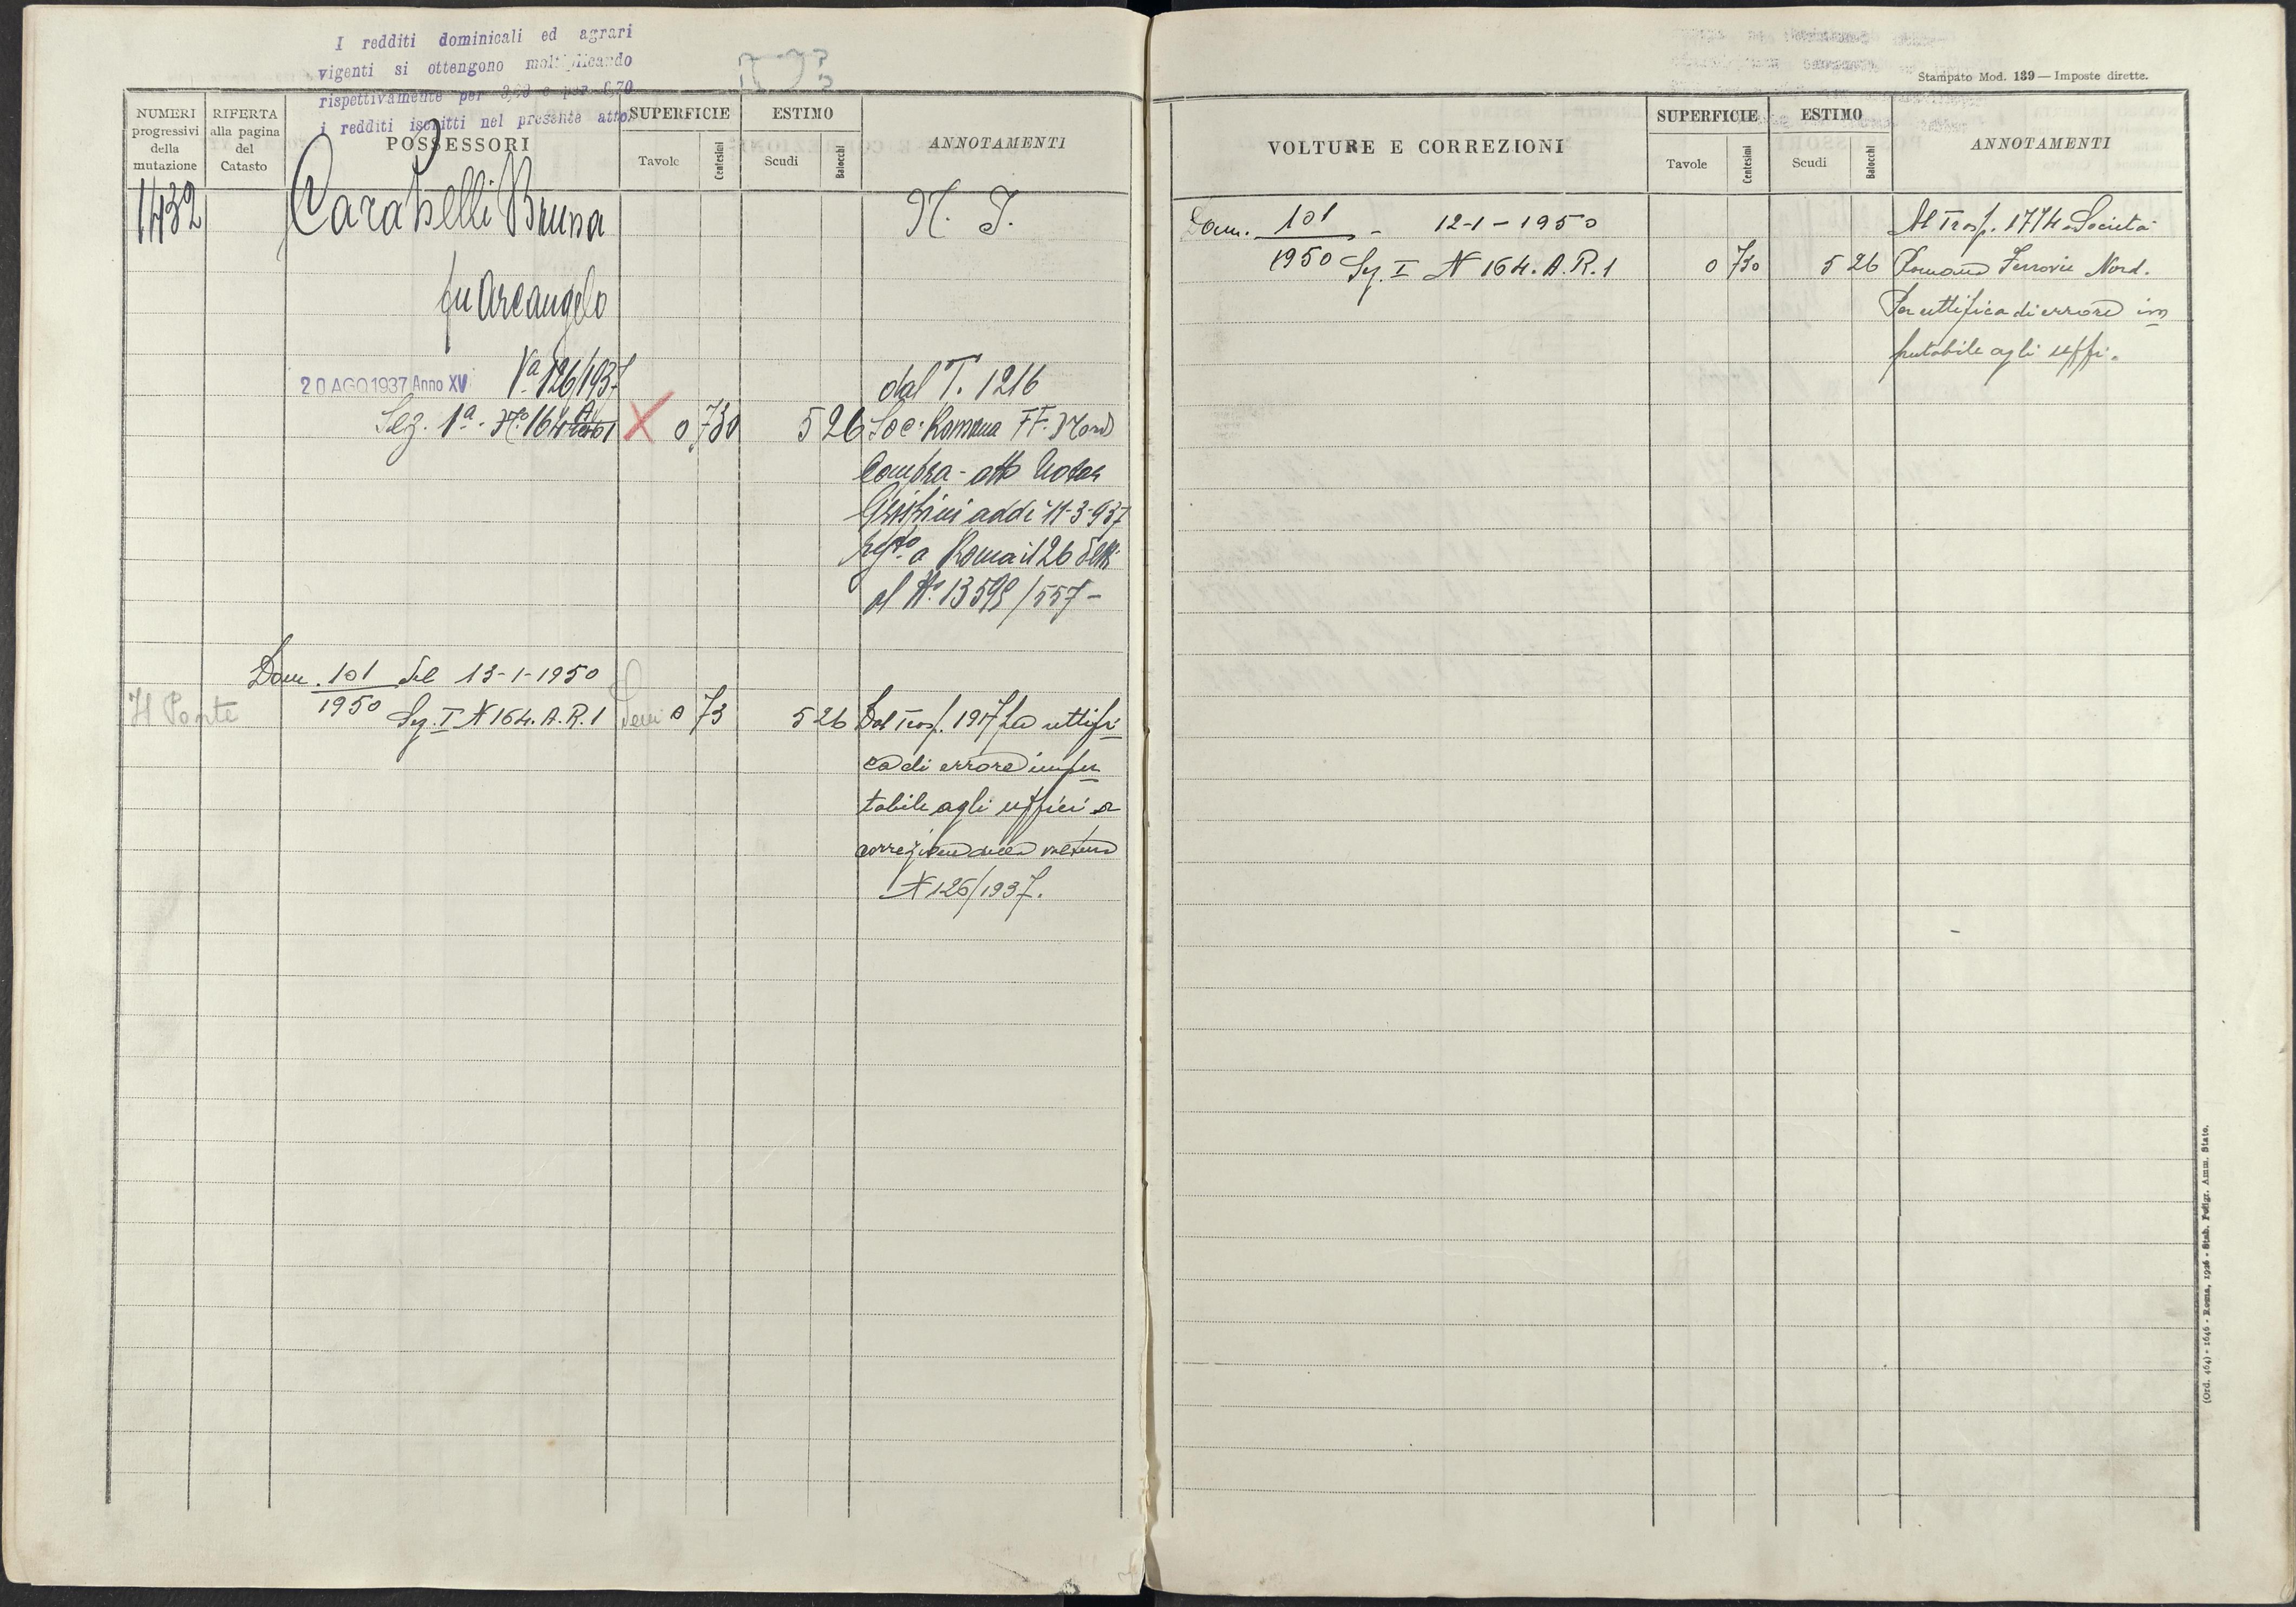 I redditi dominicali ed agrari
vigenti si ottengono moltiplicando
rispettivamente per e per 6,70
i redditi iscritti nel presente atto.
NUMERI progressivi della mutazione
RIFERTA alla pagina del Catasto
POSSESSORI
SUPERFICIE
Tavole
Centesimi
ESTIMO
Scudi
Baiocchi
ANNOTAMENTI
1432
Carabelli Bruna
N. I.
fu Arcangelo
20 AGO 1937 Anno XV Va 126/1937
dal T. 1216
Sez. 1a. No 164 A 1 X 0 730 5 26 Soc. Romana FF. Nord
Compra - atto Notar
addì 11-3-937
a Roma il 26 detti
al No. 13598/557-
Dom. 101 del 13-1-1950
Il Ponte
1950 Sez. I N 164. A. R. 1 Semi 0 73 5 26 Dal Trasf. 1917 per rettifi
ca di errore impu
tabile agli uffici a
correzione della voltura
N 126/1937.
Stampato Mod. 139 — Imposte dirette.
VOLTURE E CORREZIONI
SUPERFICIE
Tavole
Centesimi
ESTIMO
Scudi
Baiocchi
ANNOTAMENTI
Dom. 101 - 12-1-1950
Al Trasf. 1774 Società
1950 Sez. I N 164. A. R. 1 0 730 5 26 Romana Ferrovie Nord.
Per rettifica di errore im
putabile agli uffi.
(Ord. 464) - 1646 - Roma, 1926 - Stab. Poligr. Amm. Stato.